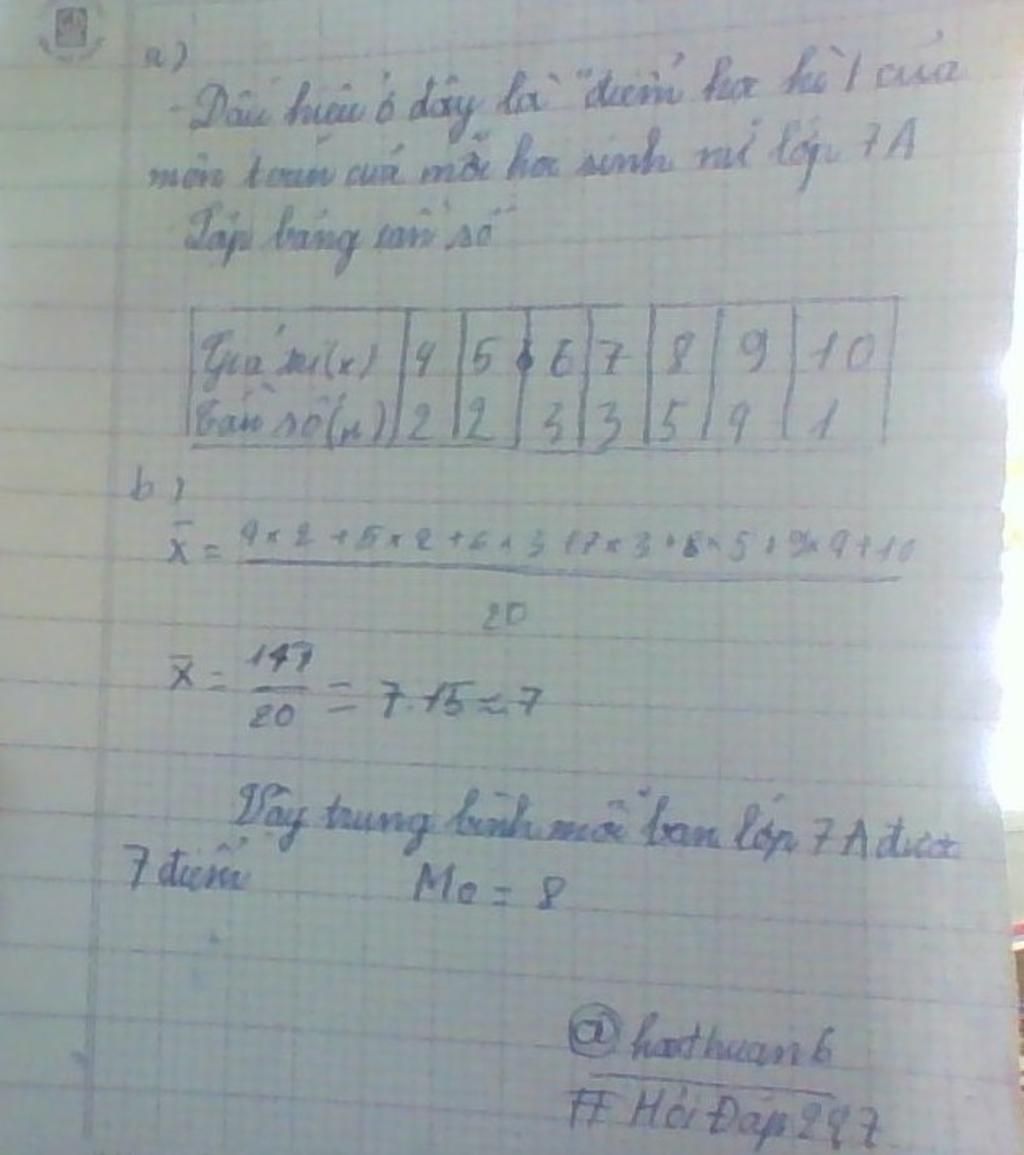 a)
- Dấu hiệu ở đây là "điểm học kì 1 của
môn toán của mỗi học sinh lớp 7A
Lập bảng tần số
Giá trị (x) 4 5 6 7 8 9 10
Tần số (n) 2 2 3 3 5 4 1
b)
X̄ = 4 × 2 + 5 × 2 + 6 × 3 + 7 × 3 + 8 × 5 + 9 × 4 + 10
20
X̄ = 147/20 = 7.15 ≈ 7
Vậy trung bình mỗi bạn lớp 7A được
7 điểm M₀ = 8
@hoathuan6
# Hỏi Đáp 247